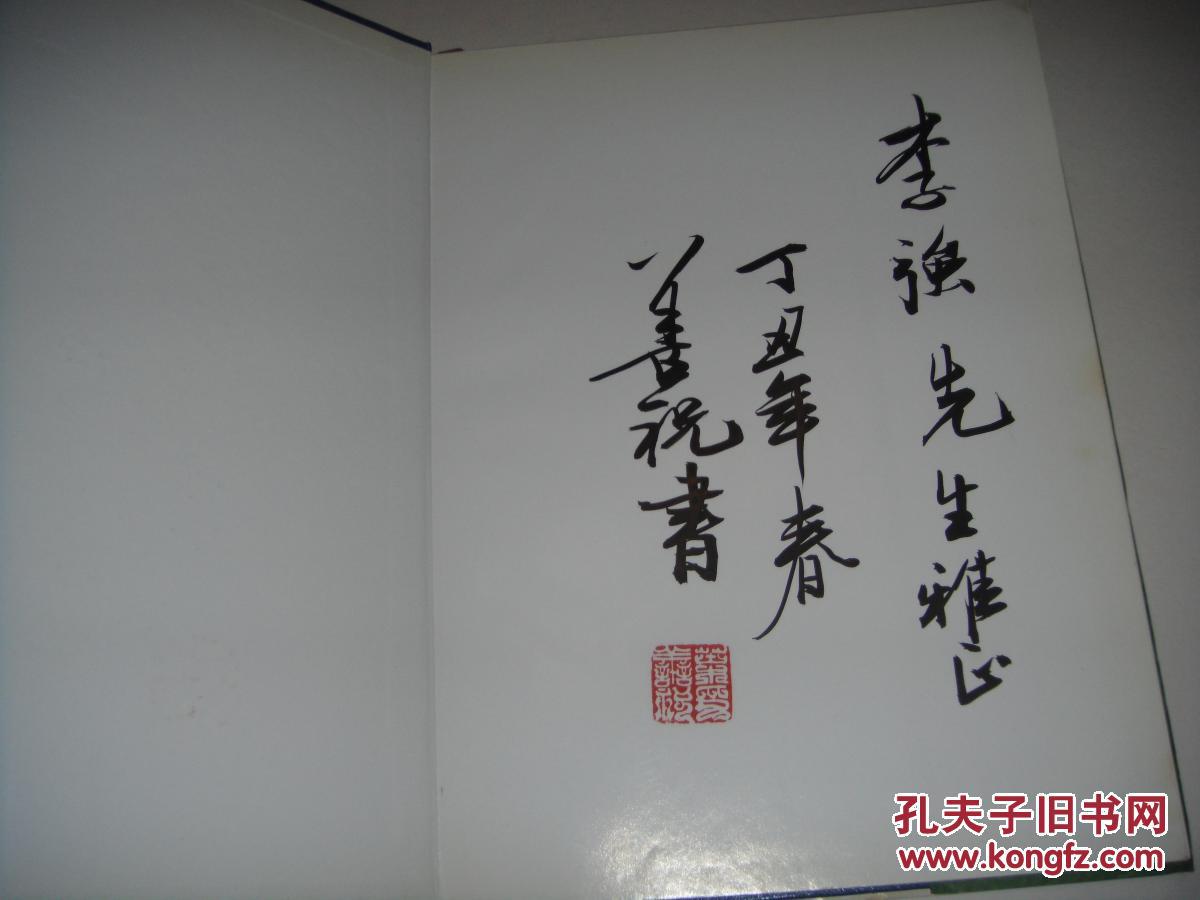 李強先生雅正
丁丑年春
善祝書
孔夫子旧书网
www.kongfz.com